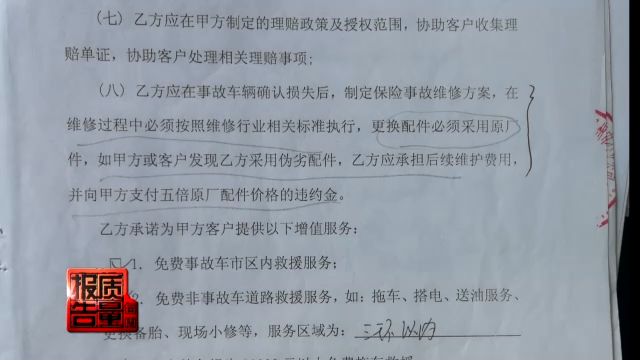 （七）乙方应在甲方制定的理赔政策及授权范围，协助客户收集理
赔单证，协助客户处理相关理赔事项；
（八）乙方应在事故车辆确认损失后，制定保险事故维修方案，在
维修过程中必须按照维修行业相关标准执行，更换配件必须采用原厂
件，如甲方或客户发现乙方采用伪劣配件，乙方应承担后续维护费用，
并向甲方支付五倍原厂配件价格的违约金。
乙方承诺为甲方客户提供以下增值服务：
1. 免费事故车市区内救援服务；
2. 免费非事故车道路救援服务，如：拖车、搭电、送油服务、
更换备胎、现场小修等，服务区域为：三环以内
质量
报告